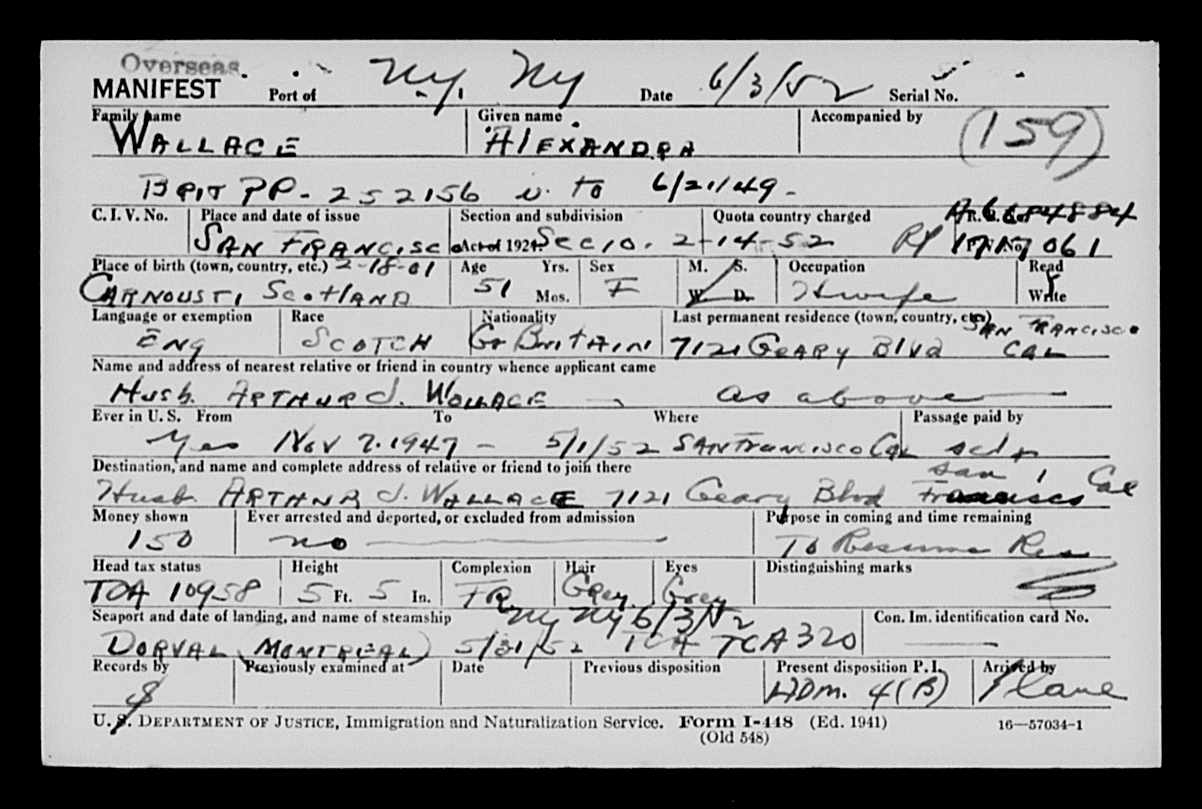 Overseas
MANIFEST Port of N.Y. NY Date 6/3/52 Serial No.
Family name Given name Accompanied by
WALLACE ALEXANDRA (159)
BRIT PP - 252156 v. to 6/21/49 -
C. I. V. No. Place and date of issue Section and subdivision Quota country charged A 6684884
SAN FRANCISCO Act of 1924 Sec 10. 2-14-52 RP 1717061
Place of birth (town, country, etc.) 2-18-01 Age Yrs. Sex M. S. Occupation Read
CARNOUSTI, SCOTLAND 51 Mos. F W. D. Hwife Write
Language or exemption Race Nationality Last permanent residence (town, country, etc.) SAN FRANCISCO
ENG SCOTCH Gr BRITAIN 7121 GEARY BLVD CAL
Name and address of nearest relative or friend in country whence applicant came
Husb. ARTHUR J. WALLACE - as above
Ever in U. S. From To Where Passage paid by
Yes Nov 7. 1947 - 5/1/52 SAN Francisco Cal self
Destination, and name and complete address of relative or friend to join there
Husb. ARTHUR J. WALLACE 7121 Geary Blvd San Francisco Cal
Money shown Ever arrested and deported, or excluded from admission Purpose in coming and time remaining
150 no To Resume Res
Head tax status Height Complexion Hair Eyes Distinguishing marks
TCA 10958 5 Ft. 5 In. FR Grey Grey
Seaport and date of landing, and name of steamship NY NY 6/3/52 Con. Im. identification card No.
DORVAL (MONTREAL) 5/31/52 TCA TCA 320
Records by Previously examined at Date Previous disposition Present disposition P. I. Arrived by
ADM. 4(B) Plane
U. S. DEPARTMENT OF JUSTICE, Immigration and Naturalization Service. Form I-448 (Ed. 1941) 16—57034-1
(Old 548)